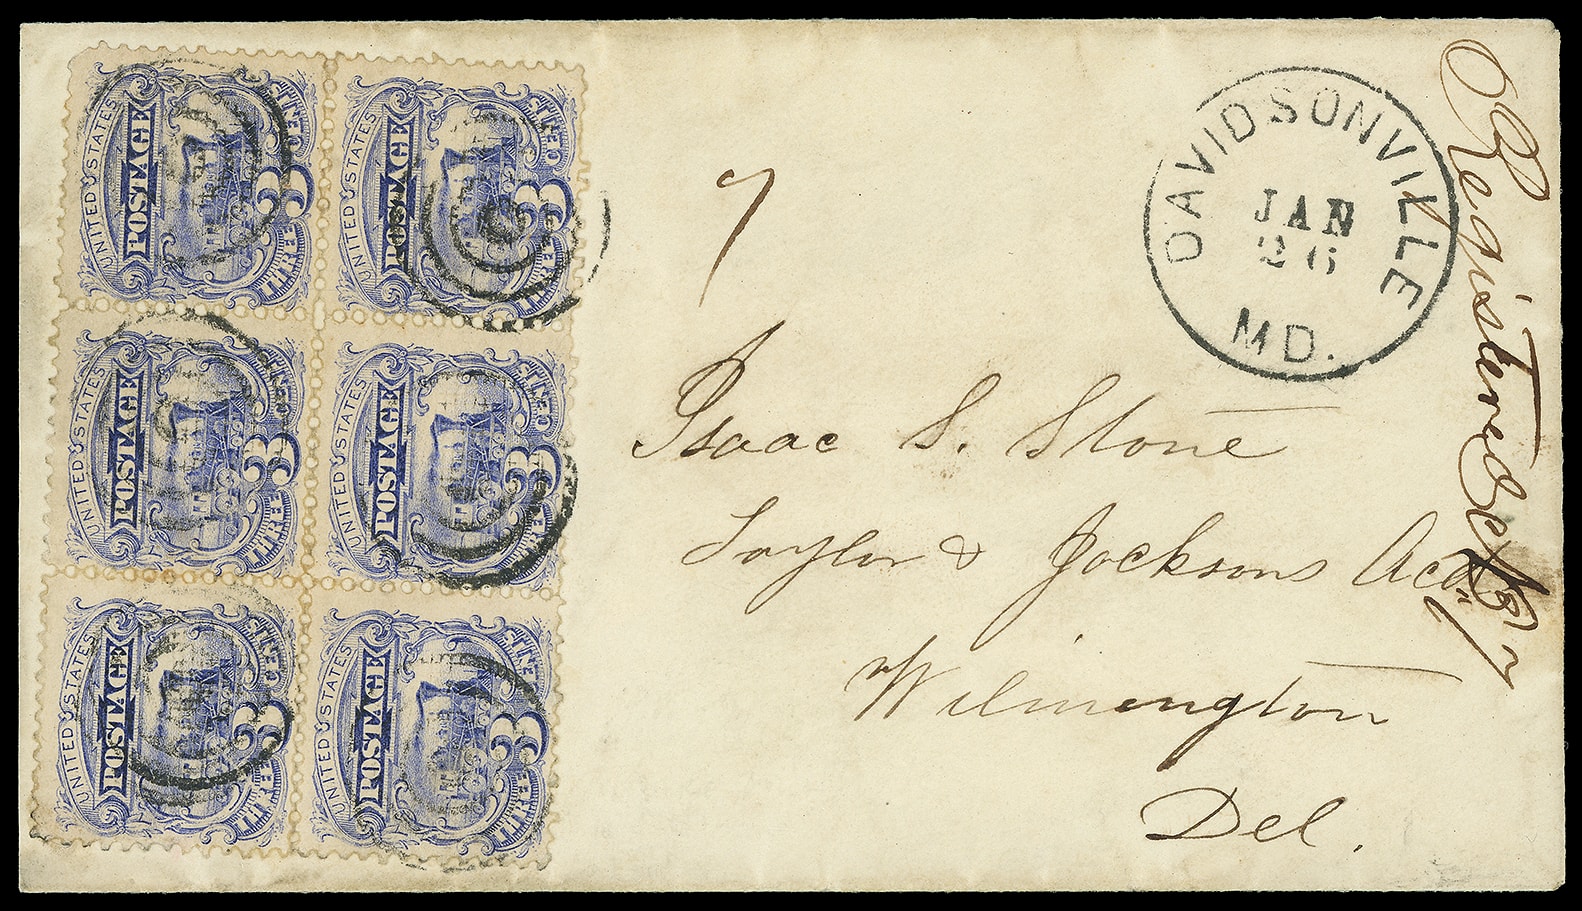 UNITED STATES
POSTAGE
3
THREE CENTS
UNITED STATES
POSTAGE
3
THREE CENTS
UNITED STATES
POSTAGE
3
THREE CENTS
UNITED STATES
POSTAGE
3
THREE CENTS
UNITED STATES
POSTAGE
3
THREE CENTS
UNITED STATES
POSTAGE
3
THREE CENTS
7
DAVIDSONVILLE
JAN
26
MD.
Registered
Isaac S. Stone
Taylor & Jacksons Acdy
Wilmington
Del.